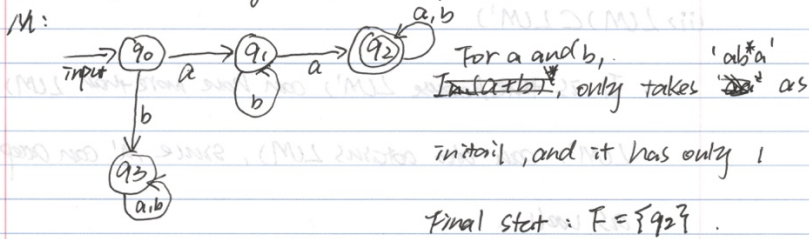 M:
input q0 a q1 a q2 a,b
b b
q3
a,b
For a and b, 'ab*a'
In (a+b)*, only takes as
initail, and it has only 1
Final stat : F = {q2}.